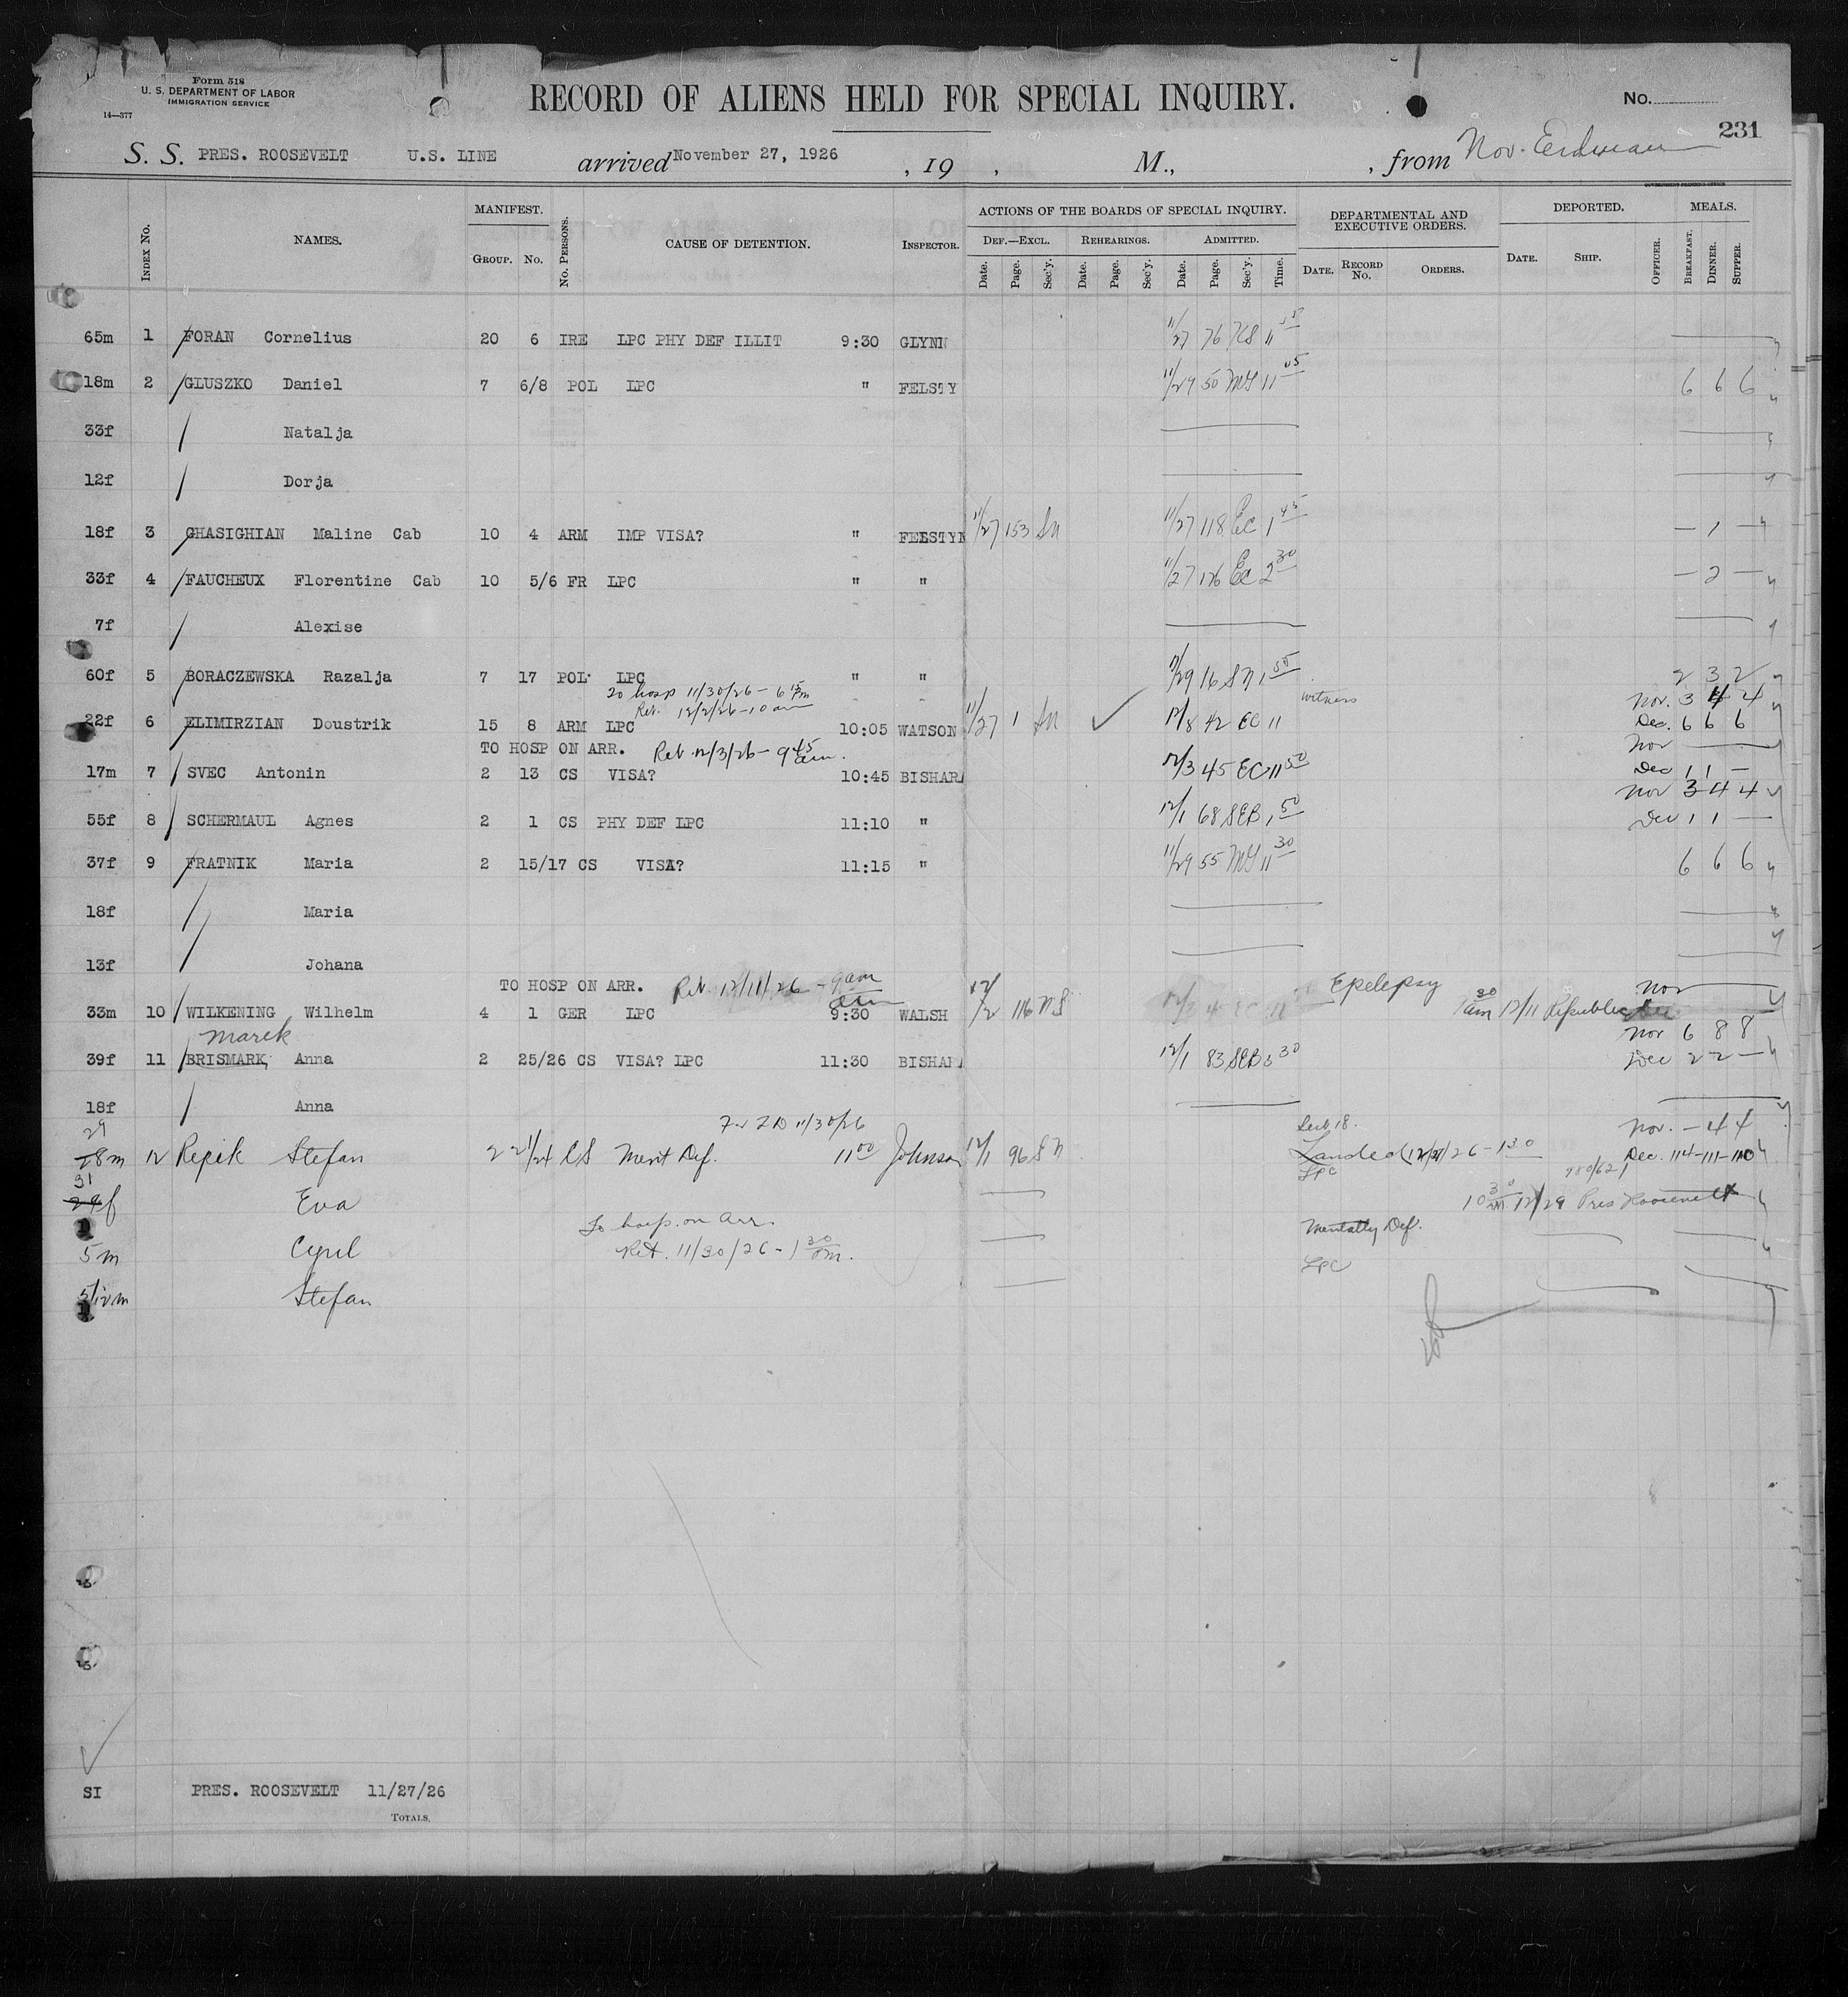 Form 518
U. S. DEPARTMENT OF LABOR
IMMIGRATION SERVICE
14—377
RECORD OF ALIENS HELD FOR SPECIAL INQUIRY.
No.
231
S. S. PRES. ROOSEVELT U.S. LINE arrived November 27, 1926 , 19 , M., , from Nov. Erdman
INDEX No. NAMES. MANIFEST. GROUP. No. No. PERSONS. CAUSE OF DETENTION. INSPECTOR. ACTIONS OF THE BOARDS OF SPECIAL INQUIRY. DEF.—EXCL. Date. Page. Sec'y. REHEARINGS. Date. Page. Sec'y. ADMITTED. Date. Page. Sec'y. Time. DEPARTMENTAL AND EXECUTIVE ORDERS. DATE. RECORD No. ORDERS. DEPORTED. DATE. SHIP. OFFICER. MEALS. BREAKFAST. DINNER. SUPPER.
65m 1 FORAN Cornelius 20 6 IRE LPC PHY DEF ILLIT 9:30 GLYNN 11/27 76 11
18m 2 GLUSZKO Daniel 7 6/8 POL LPC " FELSTY 11/29 50 11 05 6 6 6
33f Natalja
12f Dorja
18f 3 GHASIGHIAN Maline Cab 10 4 ARM IMP VISA? " FELSTYN 11/27 153 SN 11/27 118 EC 1 45 — 1 —
33f 4 FAUCHEUX Florentine Cab 10 5/6 FR LPC " " 11/27 126 EC 2 30 — 2 —
7f Alexise
60f 5 BORACZEWSKA Razalja 7 17 POL LPC " " 11/29 16 SN 1 2 3 2
To hosp 11/30/26 - 6 15 pm
Ret. 12/2/26 - 10 am
witness
Nov. 3 4 4
22f 6 ELIMIRZIAN Doustrik 15 8 ARM LPC 10:05 WATSON 11/27 1 SN 12/8 42 EC 11 Dec. 6 6 6
TO HOSP ON ARR. Ret 12/3/26 - 9 45 am. Nov
17m 7 SVEC Antonin 2 13 CS VISA? 10:45 BISHARA 12/3 45 EC 11 50 Dec 1 1 —
Nov 3 4 4
55f 8 SCHERMAUL Agnes 2 1 CS PHY DEF LPC 11:10 " 12/1 68 SEB 1 50 Dec 1 1 —
37f 9 FRATNIK Maria 2 15/17 CS VISA? 11:15 " 11/29 55 11 30 6 6 6
18f Maria
13f Johana
TO HOSP ON ARR. Ret 12/11/26 - 9 am Epilepsy Nov
33m 10 WILKENING Wilhelm 4 1 GER LPC 9:30 WALSH 12/2 116 NS 12/11 Republic
Marek Nov 6 8 8
39f 11 BRISMARK, Anna 2 25/26 CS VISA? LPC 11:30 BISHARA 12/1 83 SEB 3 30 Dec 2 2 —
18f Anna
11/30/26 Nov. — 4 4
29
28m 12 Repik Stefan 2 21/24 CS Ment Def. 11 00 Johnson 12/1 96 SN Landed 1 30 Dec.
LPC
31
24f Eva 10 30 AM 12/29 Pres Roosevelt
To hosp. on arr. Mentally Def.
5m Cyril Ret. 11/30/26 - 1 30 pm.
LPC
5/12m Stefan
SI PRES. ROOSEVELT 11/27/26
TOTALS.